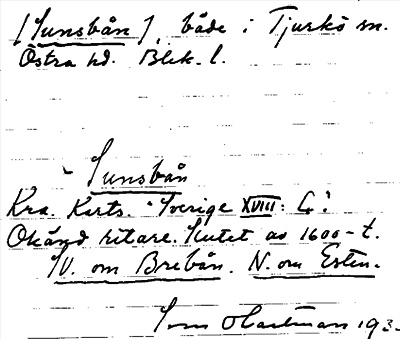 [Sunsbån], både i Tjurkö sn.
Östra hd. Blek. l.
Sunsbån
Kra. Karts. "Sverige XVIII: 6".
Okänd ritare. Slutet av 1600-t.
SV. om Brebån. N. om Esten.
Sven O Hartman 193